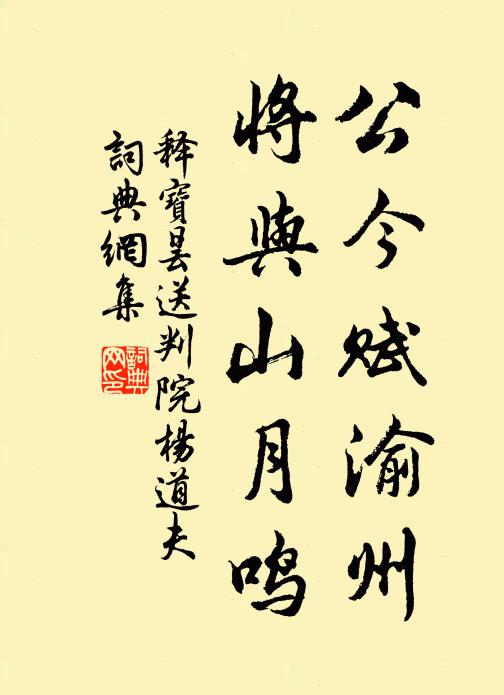 公今赋渝州
将與山月鸣
释寶曇送判院楊道夫
詞典網集
詞典网印